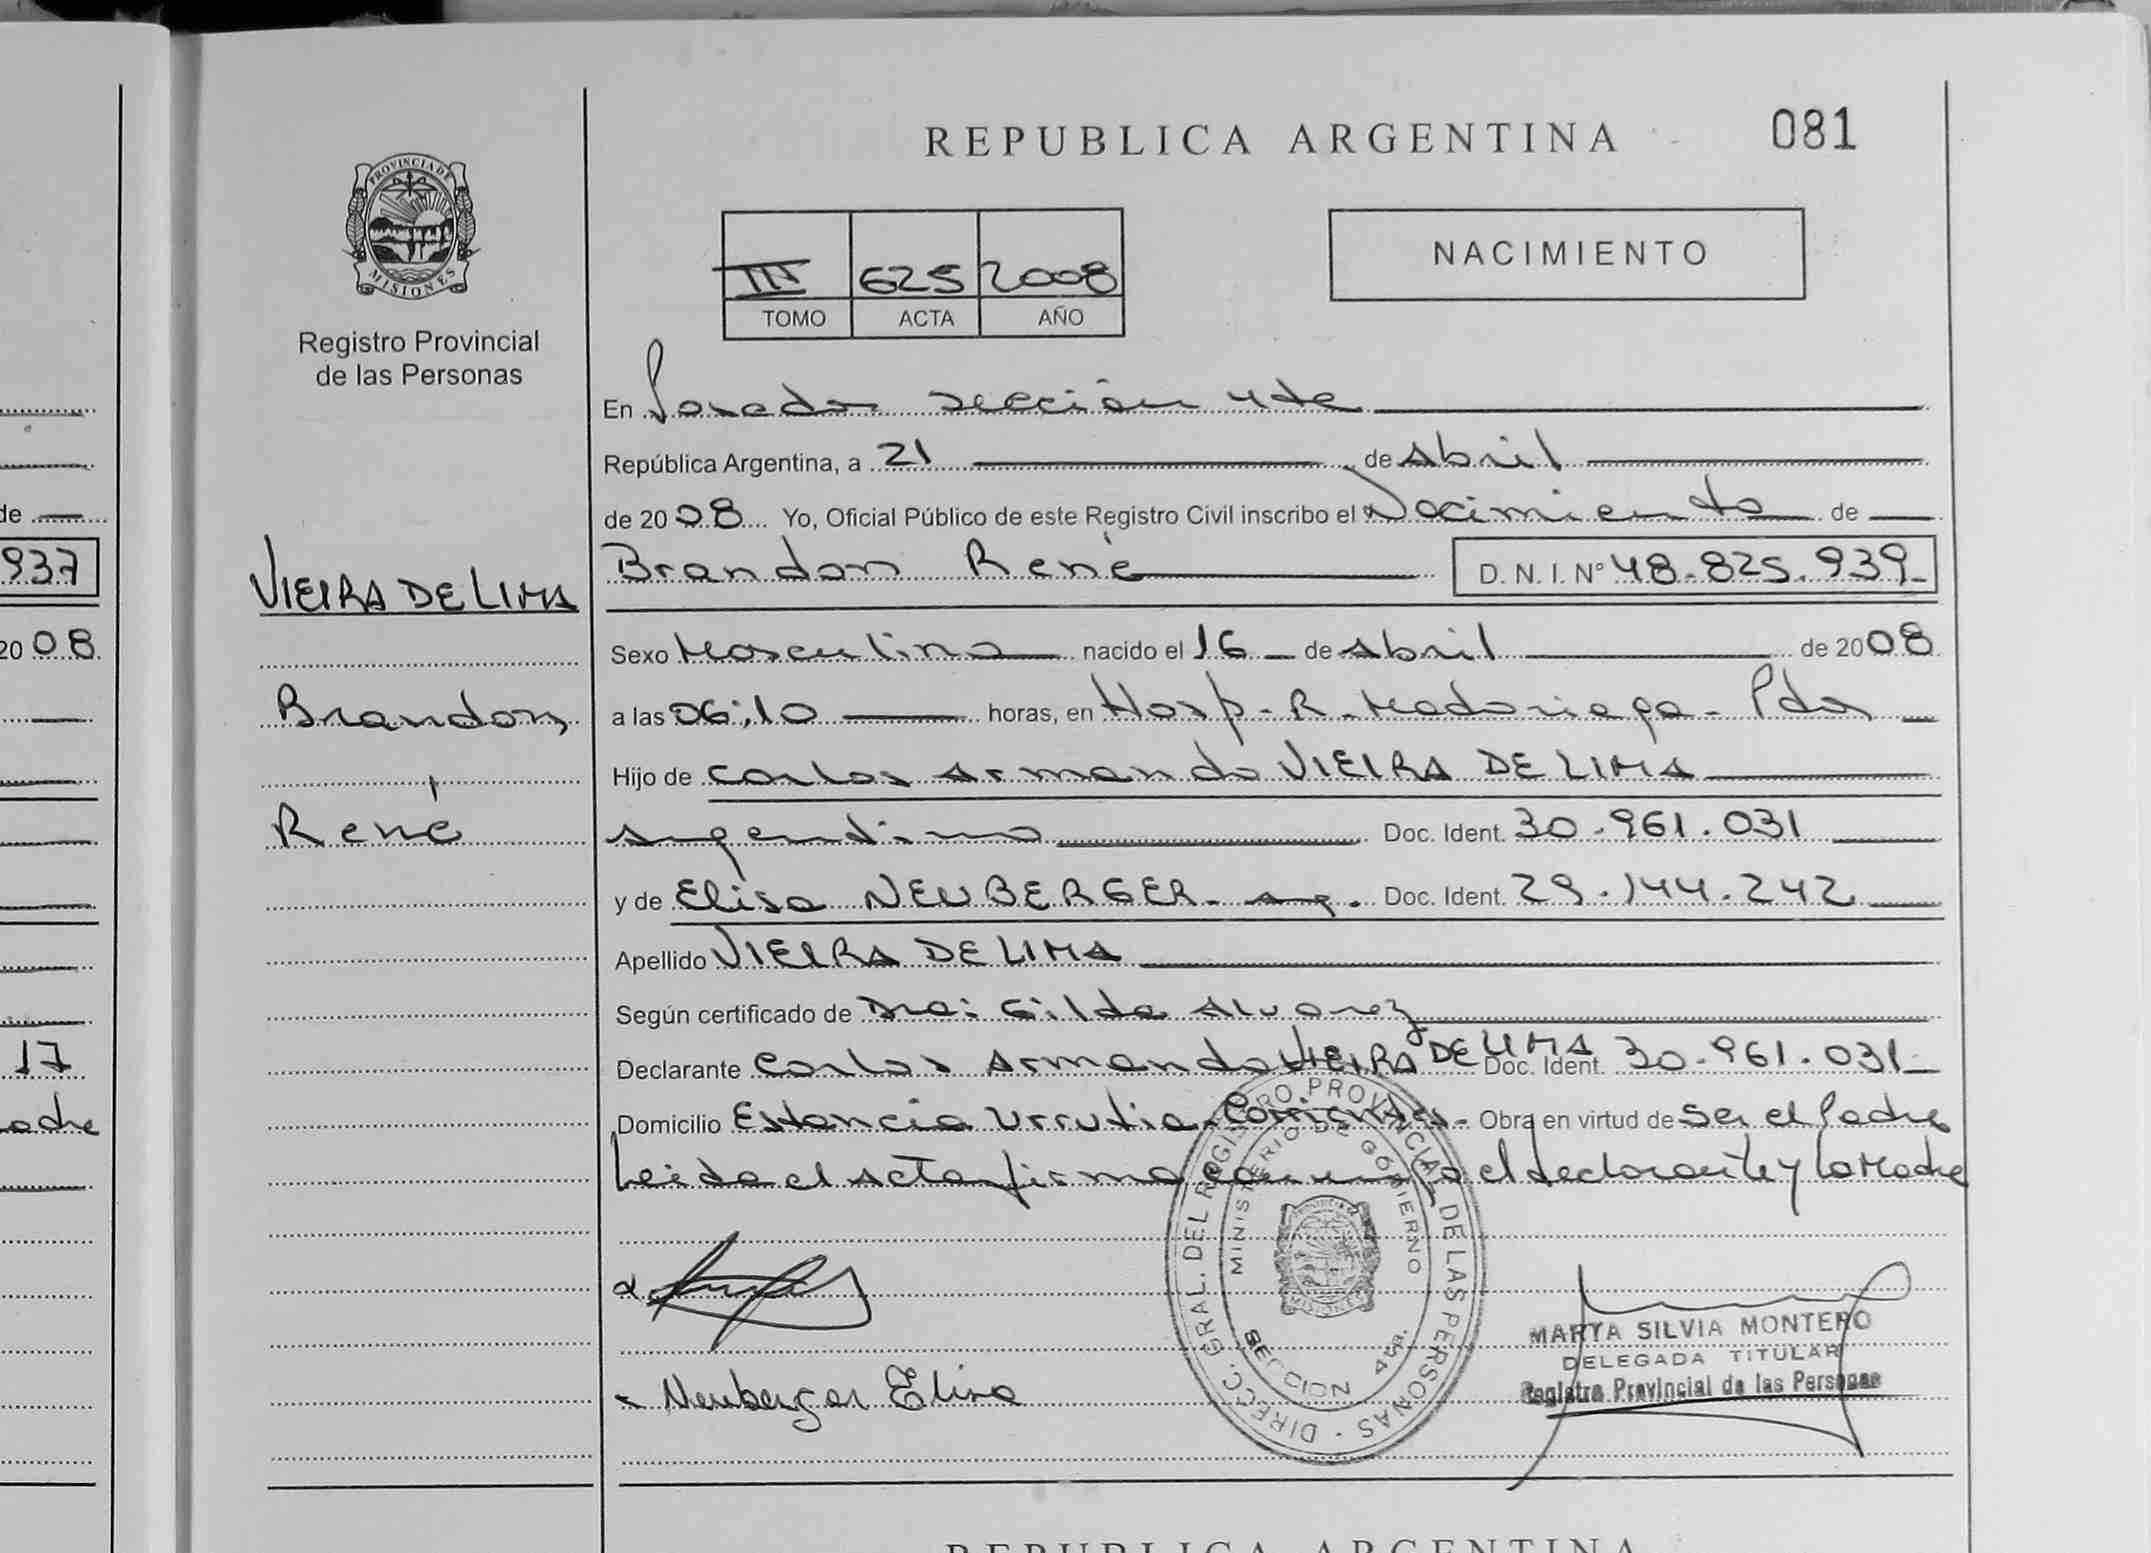 REPUBLICA ARGENTINA
081
PROVINCIA DE MISIONES
Registro Provincial
de las Personas
III 625 2008
TOMO ACTA AÑO
NACIMIENTO
En Posadas sección 4ta
República Argentina, a 21 de Abril
de 2008 Yo, Oficial Público de este Registro Civil inscribo el Nacimiento de
Brandon René D. N. I. Nº 48.825.939
VIEIRA DE LIMA
Brandon
René
Sexo Masculino nacido el 16 de Abril de 2008
a las 06:10 horas, en Hosp. R. Madariaga - Pdas
Hijo de Carlos Armando VIEIRA DE LIMA
argentino Doc. Ident. 30.961.031
y de Elisa NEUBERGER - arg. Doc. Ident. 29.144.242
Apellido VIEIRA DE LIMA
Según certificado de Dra: Gilda Alvarez
Declarante Carlos Armando VIEIRA DE LIMA Doc. Ident. 30.961.031
Domicilio Estancia Urrutia - Corrientes - Obra en virtud de ser el Padre
Leida el acta firma conmigo el declarante y la Madre
Neuberger Elisa
DIRECC. GRAL. DEL REGISTRO PROVINCIAL DE LAS PERSONAS
MINISTERIO DE GOBIERNO
MISIONES
SECCION 4ta.
MARTA SILVIA MONTERO
DELEGADA TITULAR
Registro Provincial de las Personas
de
937
2008
17
adre
REPUBLICA ARGENTINA